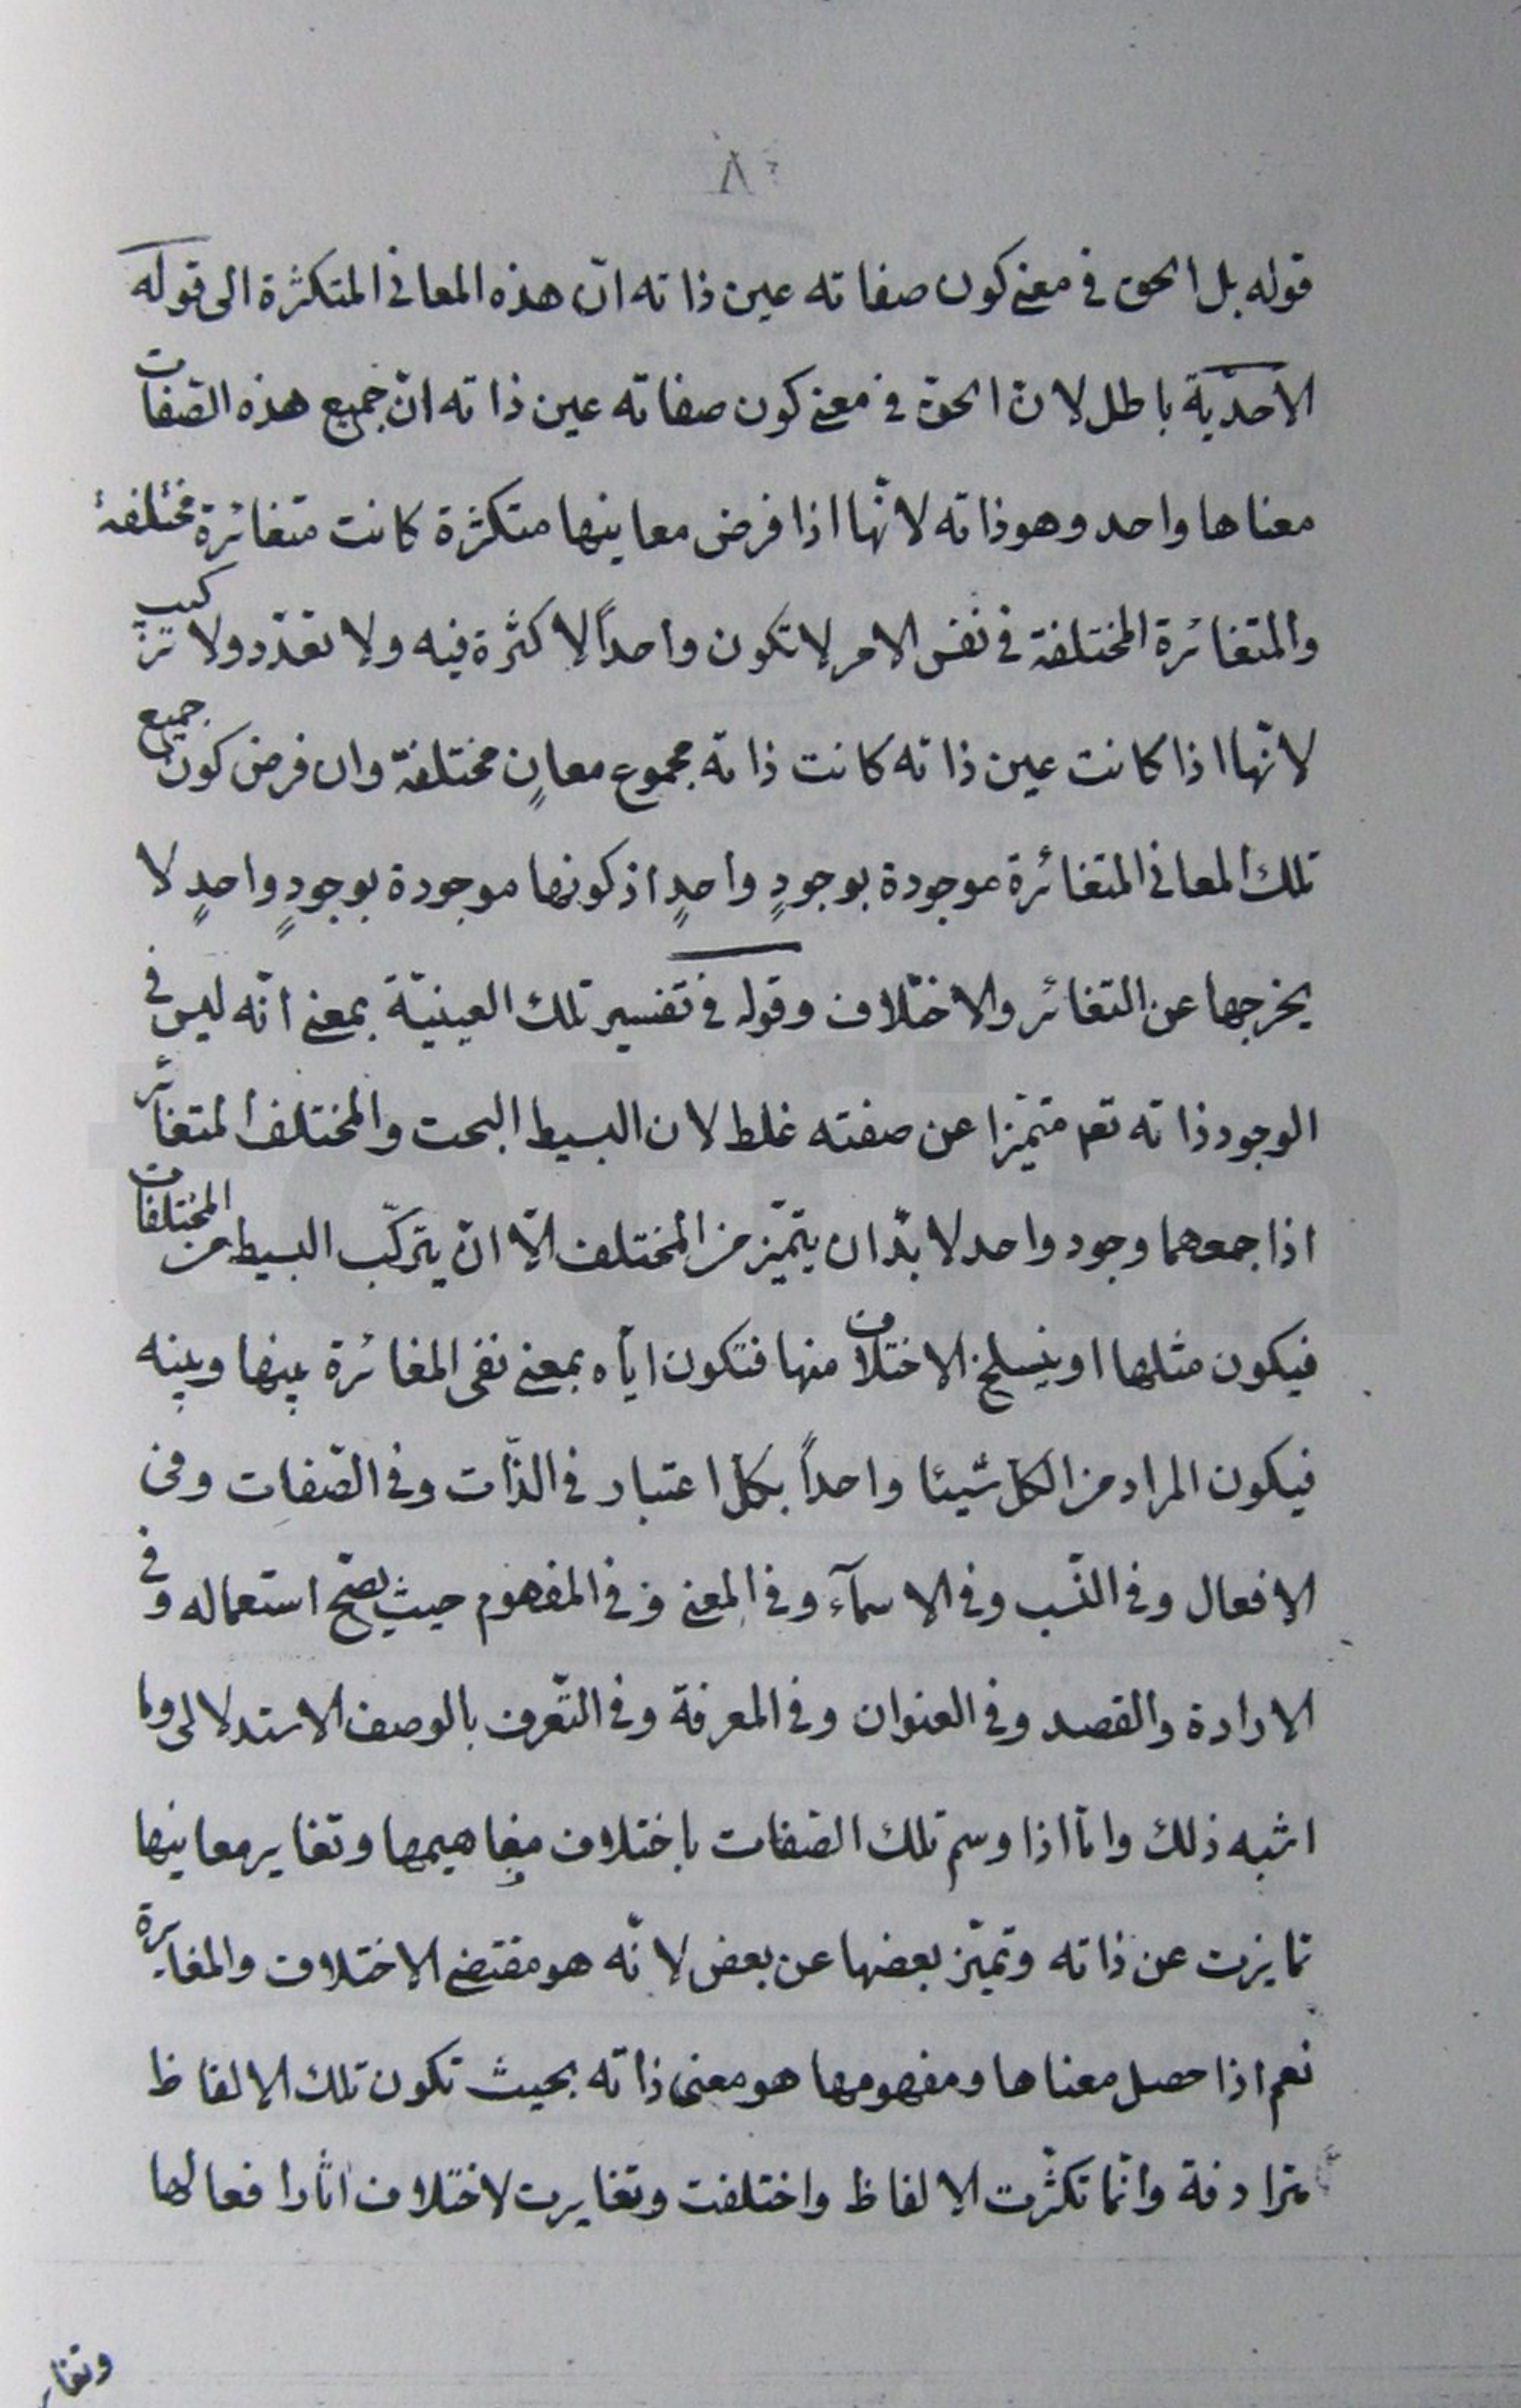 ٨٠
قوله بل الحق فى معنى كون صفاته عين ذاته انّ هذه المعانى المتكثرة الى قوله
الاحديّة باطل لانّ الحقّ فى معنى كون صفاته عين ذاته انّ جميع هذه الصّفات
معناها واحد وهو ذاته لانّها اذا فرض معانيها متكثّرة كانت متغائرة مختلفة
والمتغائرة المختلفة فى نفس الامر لا تكون واحداً لا كثرة فيه ولا تعدّد ولا تركيب
لانّها اذا كانت عين ذاته كانت ذاته مجموع معانٍ مختلفة وان فرض كون جميع
تلك المعانى المتغائرة موجودة بوجودٍ واحدٍ اذ كونها موجودة بوجودٍ واحدٍ لا
يخرجها عن التغائر والاختلاف وقوله فى تفسير تلك العينيّة بمعنى انّه ليس فى
الوجود ذاته تعـ متميّزا عن صفته غلط لان البسيط البحت والمختلف المتغائر
اذا جمعهما وجود واحد لا بدّ ان يتميّز من المختلف الّا ان يتركّب البسيط من المختلفات
فيكون مثلها او ينسلخ الاختلاف منها فتكون ايّاه بمعنى نفى المغائرة بينها وبينه
فيكون المراد من الكل شيئا واحداً بكل اعتبار فى الذّات وفى الصّفات وفى
الافعال وفى النّسب وفى الاسمآء وفى المعنى وفى المفهوم حيث يصحّ استعماله وفى
الارادة والقصد وفى العنوان وفى المعرفة وفى التّعرف بالوصف الاستدلالى وما
اشبه ذلك وامّا اذا وسم تلك الصّفات باختلاف مفاهيمها وتغاير معانيها
تمايزت عن ذاته وتميّز بعضها عن بعض لانّه هو مقتضى الاختلاف والمغايرة
نعم اذا حصل معناها ومفهومها هو معنى ذاته بحيث تكون تلك الالفاظ
مترادفة وانّما تكثّرت الالفاظ واختلفت وتغايرت لاختلاف اثار افعالها
وتغاير